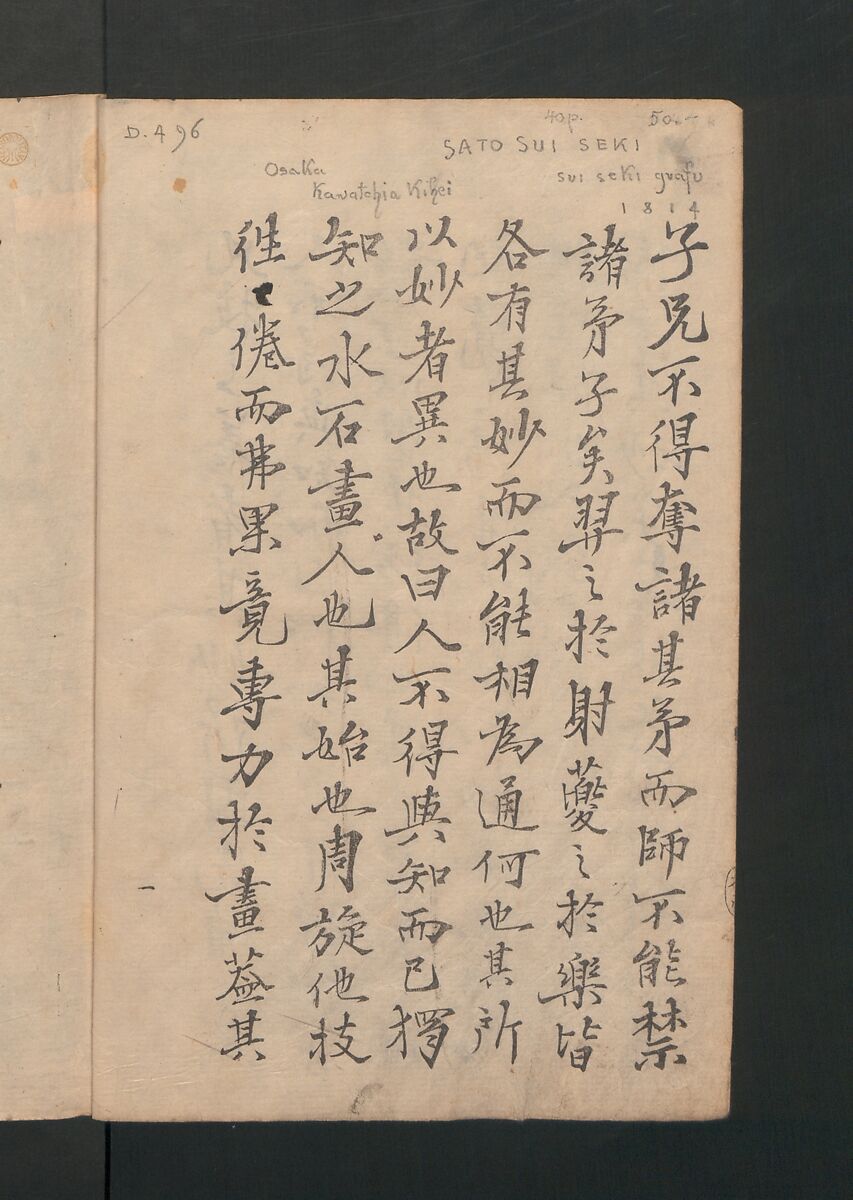 D.A 96
40p.
SATO SUI SEKI
Osaka
sui seki guafu
Kawatchia Kihei
1814
子兄不得奪諸其弟而師不能禁
諸弟子矣羿之於射夔之於樂皆
各有其妙而不能相為通何也其所
以妙者異也故曰人不得與知而已獨
知之水石畫人也其始也周旋他技
徃〻倦而弗累竟專力於畫蓋其
一